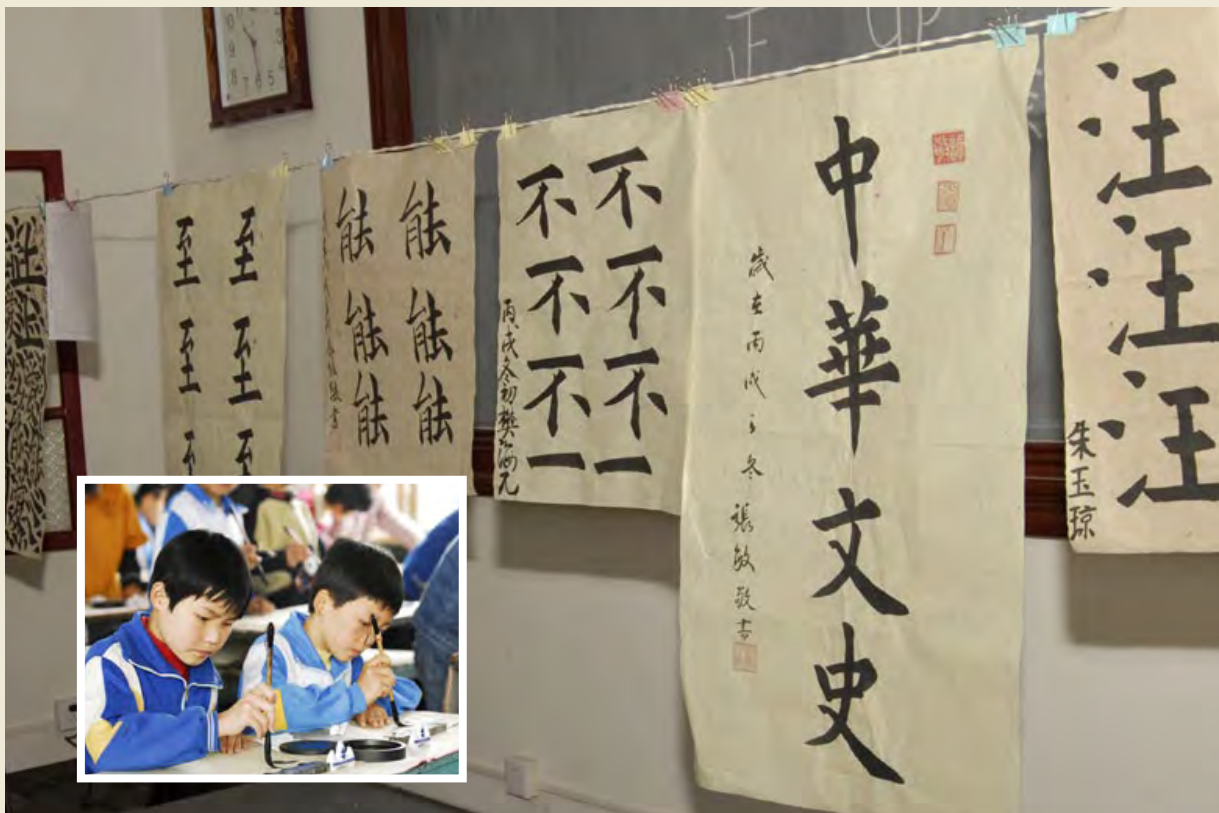 至 至
至 至
能 能
能 能
能 能
不 不
不 不
不 不
一 一
丙戌冬初樊海元
中華文史
歲在丙戌之冬張敏敬书
汪
汪
汪
朱玉琼